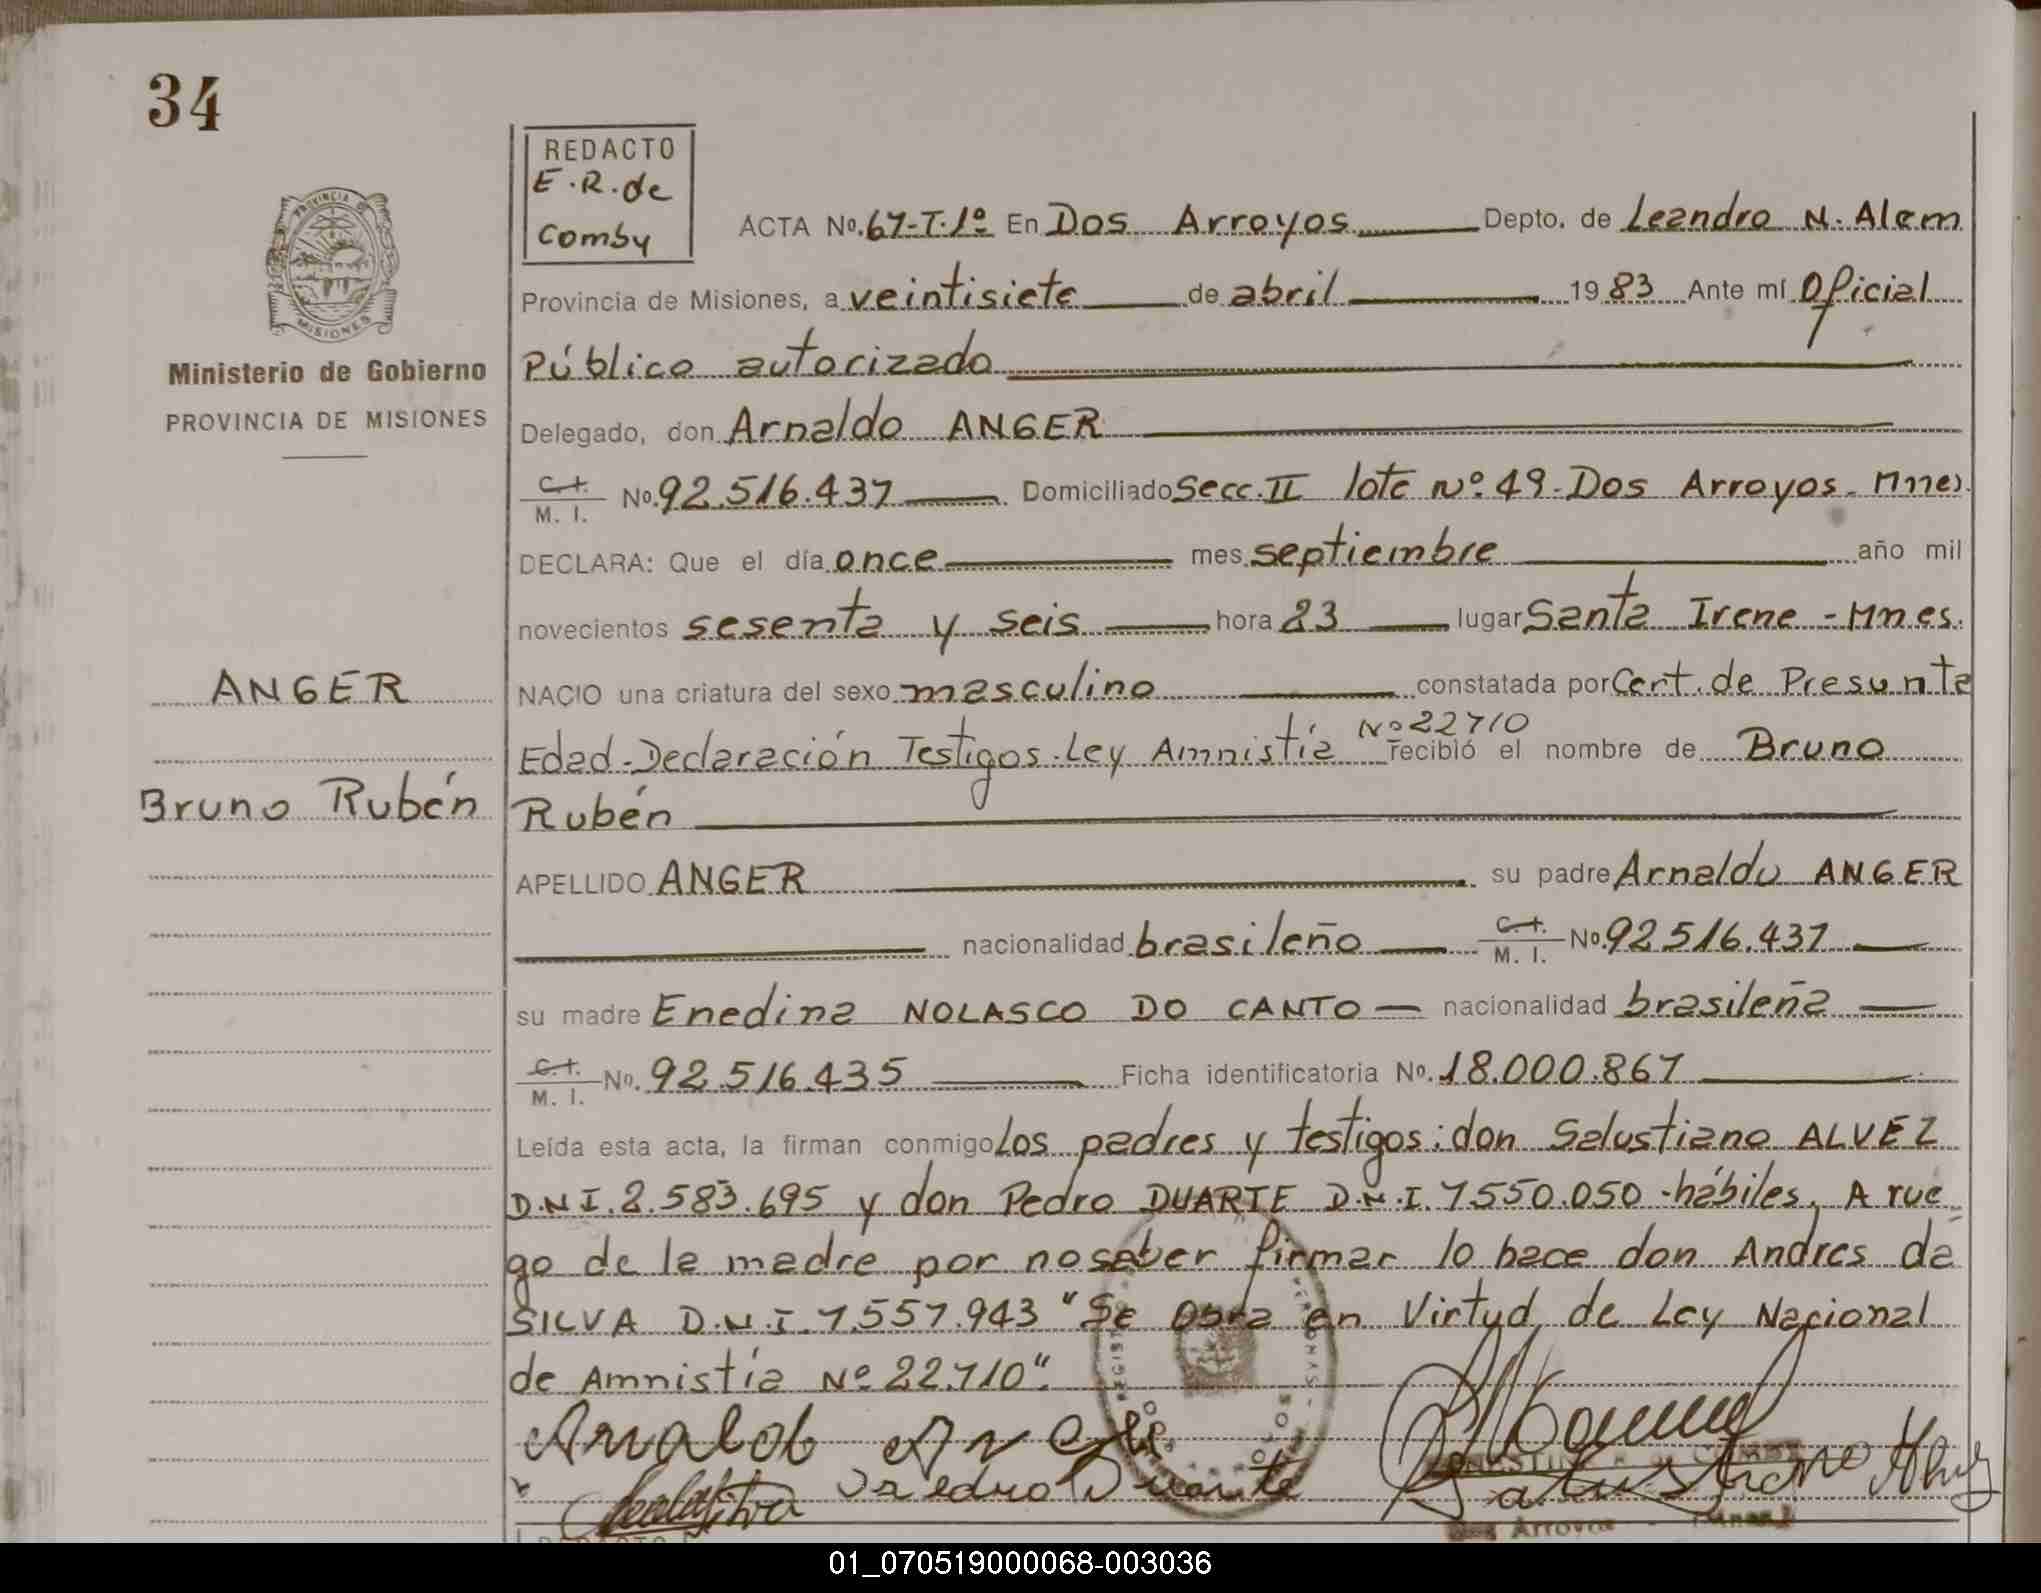 34
REDACTO
E.R. de
Comby
PROVINCIA DE
MISIONES
Ministerio de Gobierno
PROVINCIA DE MISIONES
ANGER
Bruno Rubén
ACTA No. 67-T.1º En Dos Arroyos Depto. de Leandro N. Alem
Provincia de Misiones, a veintisiete de abril 1983 Ante mí Oficial
Público autorizado
Delegado, don Arnaldo ANGER
C.I. M. I. No. 92.516.437 Domiciliado Secc. II lote Nº 49-Dos Arroyos- Mnes.
DECLARA: Que el día once mes septiembre año mil
novecientos sesenta y seis hora 23 lugar Santa Irene - Mnes.
NACIO una criatura del sexo masculino constatada por Cert. de Presunta
Edad-Declaración Testigos-Ley Amnistía Nº 22710 recibió el nombre de Bruno
Rubén
APELLIDO ANGER su padre Arnaldo ANGER
nacionalidad brasileño C.I. M. I. No. 92.516.437
su madre Enedina NOLASCO DO CANTO nacionalidad brasileña
C.I. M. I. No. 92.516.435 Ficha identificatoria No. 18.000.867
Leída esta acta, la firman conmigo Los padres y testigos: don Salustiano ALVEZ
D.N.I. 2.583.695 y don Pedro DUARTE D.N.I. 7.550.050 -hábiles. A rue
go de la madre por no saber firmar lo hace don Andres da
SILVA D.N.I. 7.557.943 "Se obra en Virtud de Ley Nacional
de Amnistía Nº 22.710".
Arnaldo Anger
Pedro Duarte
Salustiano Alvez
Arroyos
01_070519000068-003036